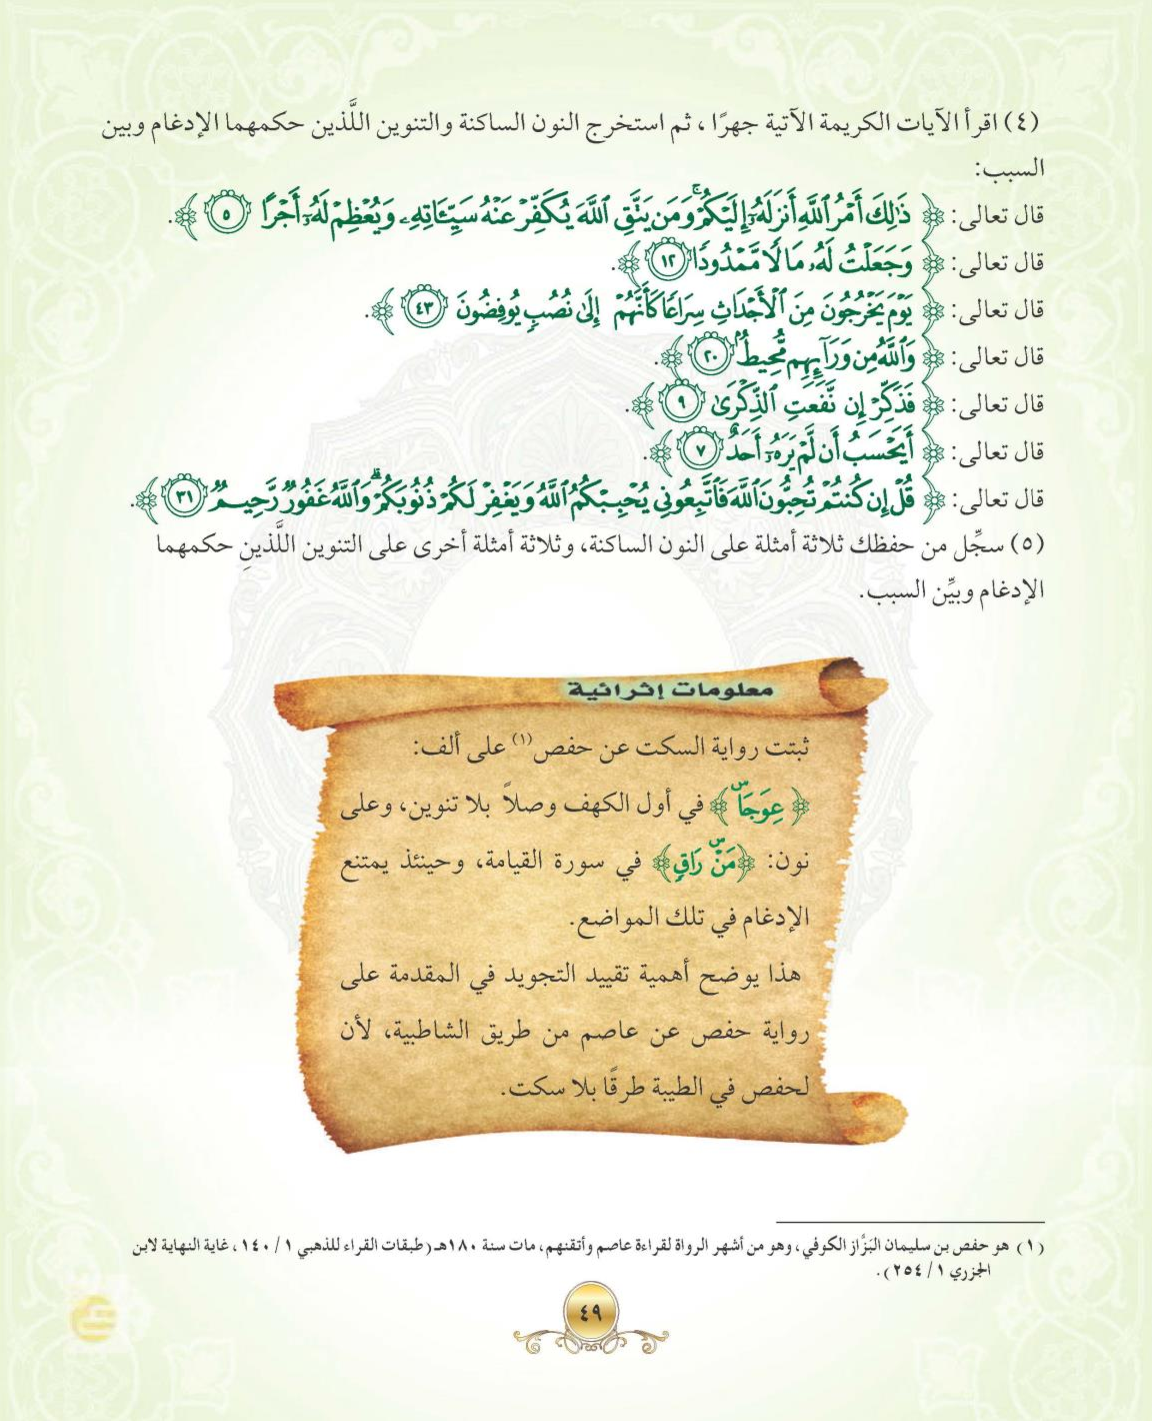 (٤) اقرأ الآيات الكريمة الآتية جهرًا ، ثم استخرج النون الساكنة والتنوين اللَّذين حكمهما الإدغام وبين
السبب:
قال تعالى: ﴿ ذَٰلِكَ أَمْرُ ٱللَّهِ أَنزَلَهُۥٓ إِلَيْكُمْ ۚ وَمَن يَتَّقِ ٱللَّهَ يُكَفِّرْ عَنْهُ سَيِّـَٔاتِهِۦ وَيُعْظِمْ لَهُۥٓ أَجْرًا ٥ ﴾.
قال تعالى: ﴿ وَجَعَلْتُ لَهُۥ مَالًا مَّمْدُودًا ١٢ ﴾.
قال تعالى: ﴿ يَوْمَ يَخْرُجُونَ مِنَ ٱلْأَجْدَاثِ سِرَاعًا كَأَنَّهُمْ إِلَىٰ نُصُبٍ يُوفِضُونَ ٤٣ ﴾.
قال تعالى: ﴿ وَٱللَّهُ مِن وَرَآئِهِم مُّحِيطٌۢ ٢٠ ﴾.
قال تعالى: ﴿ فَذَكِّرْ إِن نَّفَعَتِ ٱلذِّكْرَىٰ ٩ ﴾.
قال تعالى: ﴿ أَيَحْسَبُ أَن لَّمْ يَرَهُۥٓ أَحَدٌ ٧ ﴾.
قال تعالى: ﴿ قُلْ إِن كُنتُمْ تُحِبُّونَ ٱللَّهَ فَٱتَّبِعُونِى يُحْبِبْكُمُ ٱللَّهُ وَيَغْفِرْ لَكُمْ ذُنُوبَكُمْ ۗ وَٱللَّهُ غَفُورٌ رَّحِيمٌ ٣١ ﴾.
(٥) سجِّل من حفظك ثلاثة أمثلة على النون الساكنة، وثلاثة أمثلة أخرى على التنوين اللَّذينِ حكمهما
الإدغام وبيِّن السبب.
معلومات إثرائية
ثبتت رواية السكت عن حفص(١) على ألف:
﴿ عِوَجَاۜ ﴾ في أول الكهف وصلاً بلا تنوين، وعلى
نون: ﴿مَنْۜ رَاقٍ﴾ في سورة القيامة، وحينئذ يمتنع
الإدغام في تلك المواضع.
هذا يوضح أهمية تقييد التجويد في المقدمة على
رواية حفص عن عاصم من طريق الشاطبية، لأن
لحفص في الطيبة طرقًا بلا سكت.
(١) هو حفص بن سليمان البَزَّاز الكوفي، وهو من أشهر الرواة لقراءة عاصم وأتقنهم، مات سنة ١٨٠هـ (طبقات القراء للذهبي ١ / ١٤٠، غاية النهاية لابن
الجزري ١ / ٢٥٤).
٤٩